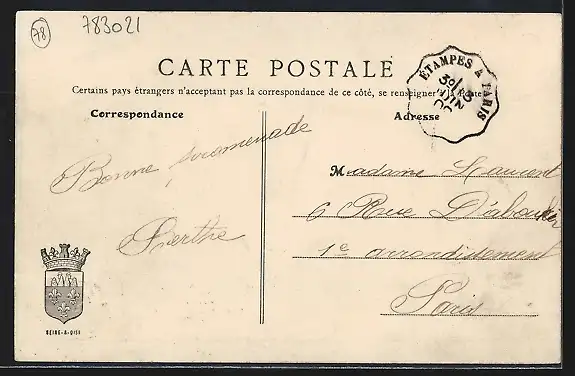 78
783021
CARTE POSTALE
Certains pays étrangers n'acceptant pas la correspondance de ce côté, se renseigner à la Poste
ÉTAMPES À PARIS
Correspondance
Adresse
Bonne promenade
Berthe
Madame Laurent
6 Rue D'aboukir
1e arrondissement
Paris
SEINE-&-OISE